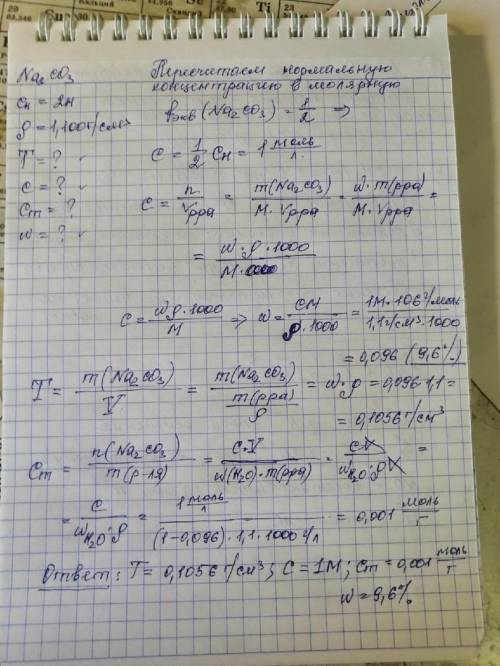 Na₂CO₃
Cн = 2н
ρ = 1,100 г/см³
T = ?
c = ?
Cm = ?
w = ?
Пересчитаем нормальную
концентрацию в молярную
fэкв (Na₂CO₃) = 1/2 ⇒
C = 1/2 Cн = 1 моль/л
C = n/Vрра = m(Na₂CO₃)/(M·Vрра) = w·m(рра)/(M·Vрра) =
= w·ρ·1000/M
C = wρ·1000/M ⇒ w = CM/(ρ·1000) = 1M·106 г/моль/(1,1 г/см³·1000)
= 0,096 (9,6%)
T = m(Na₂CO₃)/V = m(Na₂CO₃)/(m(рра)/ρ) = w·ρ = 0,096·1,1 =
= 0,1056 г/см³
Cm = n(Na₂CO₃)/m(р-ля) = C·V/(w(H₂O)·m(рра)) = CV/(wH₂O·ρV) =
= C/(wH₂O·ρ) = 1 моль/л/((1-0,096)·1,1·1000 г/л) = 0,001 моль/г
Ответ: T = 0,1056 г/см³; C = 1M; Cm = 0,001 моль/г
w = 9,6%